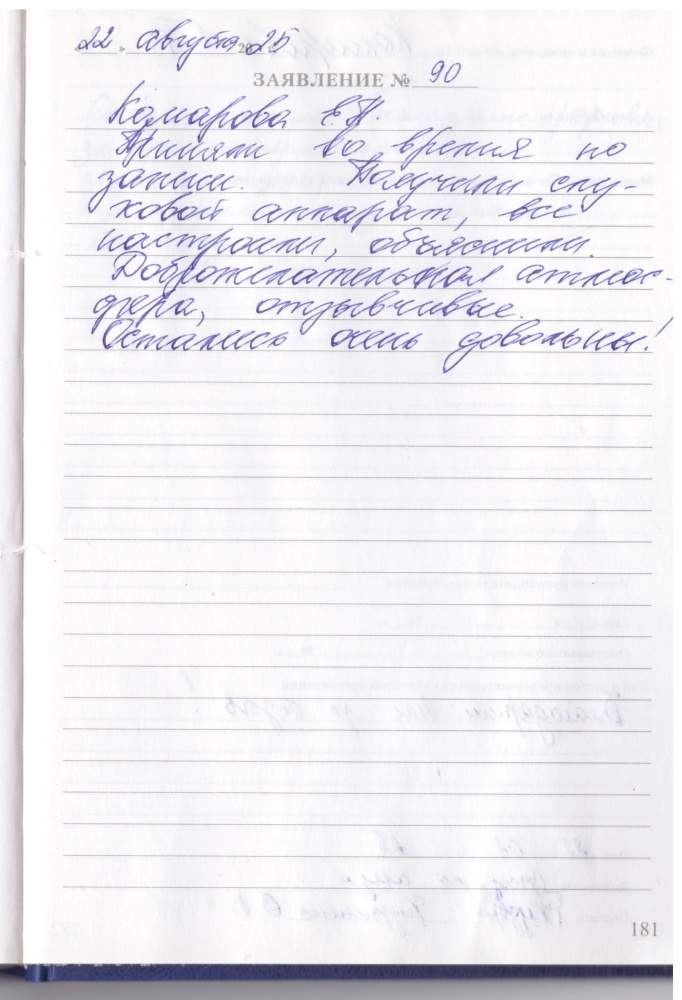 „22" августа 2025
ЗАЯВЛЕНИЕ № 90
Комарова Е.Н.
Приняли во время по
записи. Получили слу-
ховой аппарат, все
настроили, объяснили.
Доброжелательная атмос-
фера, отзывчивые.
Остались очень довольны!
181